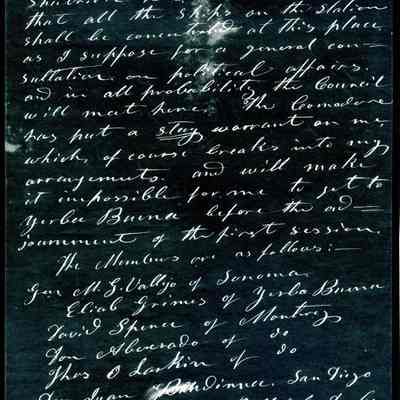 that all the ships on the station
shall be concentrated at this place
as I suppose for a general con-
sultation on political affairs,
and in all probability the Council
will meet here. The Comodore
has put a stay warrant on me
which of course breaks into my
arrangements and will make
it impossible for me to get to
Yerba Buena before the ad-
journment of the first session.
The Members are as follows:-
Gen M. G. Vallejo of Sonoma
Eliab Grimes of Yerba Buena
David Spence of Monterey
Don Alverado of do
Thos O Larkin of do
Don Juan Bandinnee. San Diego